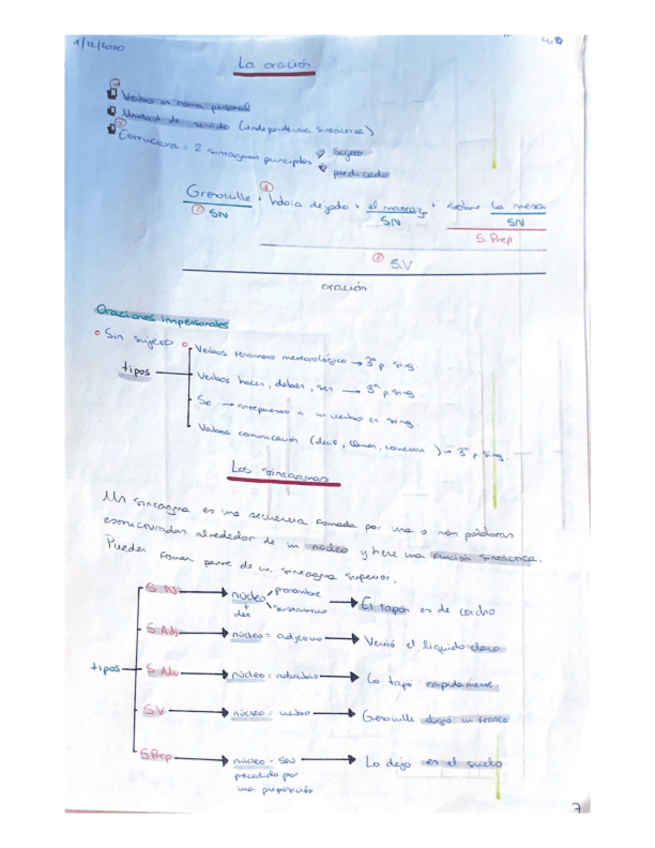 1/12/2020
La oración
Verbo en forma personal
Unidad de sentido (independencia sintáctica)
Estructura = 2 sintagmas principales
sujeto
predicado
Grenouille + había dejado + el matraz + sobre la mesa
① 
② SN SN SN
S Prep
② S.V
oración
Oraciones impersonales
Sin sujeto
tipos
Verbos fenómeno meteorológico → 3ª p. sing.
Verbos hacer, deber, ser → 3ª p. sing.
Se → antepuesto a un verbo en sing.
Verbos comunicación (decir, llamar, ) → 3ª p. sing.
Los sintagmas
Un sintagma es una secuencia formada por una o más palabras
estructuradas alrededor de un núcleo y tiene una función sintáctica.
Pueden formar parte de un sintagma superior.
tipos
S.N → núcleo + det pronombre sustantivo → El tapón es de corcho
S.Adj → núcleo = adjetivo → Vertió el líquido claro
S.Adv → núcleo = adverbio → Lo tapó rápidamente
S.V → núcleo = verbo → Grenouille dejó un frasco
S.Prep → núcleo - SN → Lo dejó en el suelo.
precedido por
una preposición
7